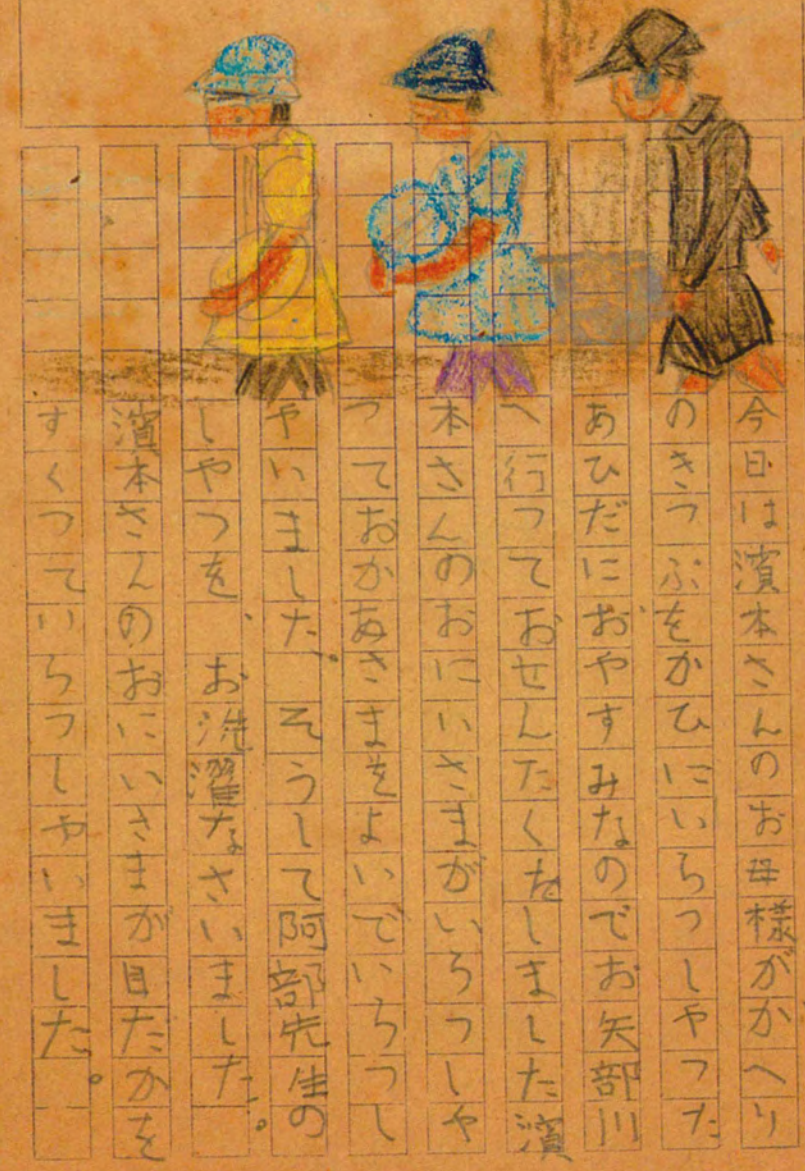 今日は濱本さんのお母様がかへり
のきつぷをかひにいらつしやつた
あひだにおやすみなのでお矢部川
へ行つておせんたくをしました濱
本さんのおにいさまがいらつしや
つておかあさまをよいでいらつし
やいました。そうして阿部先生の
しやつを、お洗濯なさいました。
濱本さんのおにいさまが目たかを
すくつていらつしやいました。